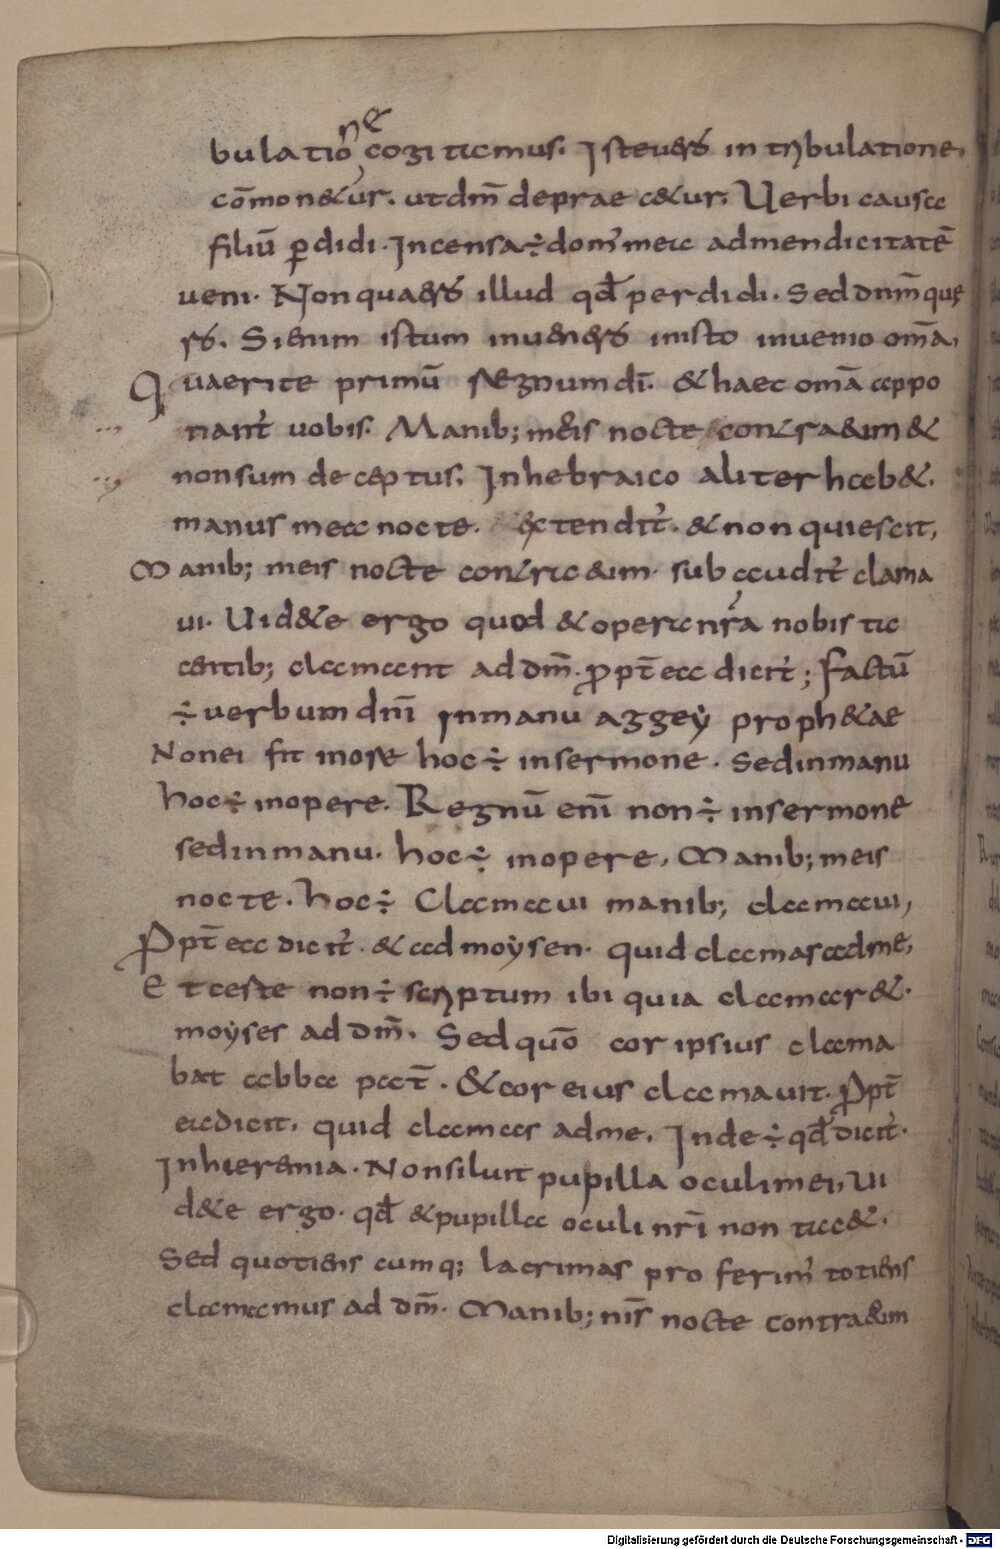 bulatiōne cogitemus. Iste uers̄ in tribulatione,
cōmonetur. ut dm̄ deprae cetur. Uerbi causa
filiū ꝑdidi. Incensa ÷ dom' mea ad mendicitatē
ueni. Non quaeris illud qđ perdidi. Sed dnm̄ quę
ris. Si enim istum inueneris in isto inuenio om̄a,
Quaerite primū regnum dī. & haec om̄a appo
nant' uobis. Manib; meis nocte contra eum &
non sum deceptus. In hebraico aliter hab&.
manus mea nocte. extendit'. & non quiescit,
Manib; meis nocte contra eum. sub audit' clama
ui. Uid&e ergo quod & opera nr̄a nobis ta
centib; clamant ad dm̄. ꝓpt̄ ea dicit'; Factū
÷ uerbum dnī in manu aggeẏ proph&ae
Non ei fit in ore hoc ÷ in sermone. Sed in manu
hoc ÷ in opere. Regnū enī non ÷ in sermone
sed in manu. hoc ÷ in opere, Manib; meis
nocte. hoc ÷ Clamaui manib; clamaui,
Ꝓpt̄ ea dicit'. & ad moẏsen. quid clamas ad me,
Et certe non ÷ scriptum ibi quia clamar&.
moẏses ad dm̄. Sed quō cor ipsius clama
bat abba pat̄. & cor eius clamauit. Ꝓpt̄
ea dicit, quid clamas ad me, Inde ÷ qđ dicit'.
In hieremia. Non siluit pupilla oculi mei, Ui
d&e ergo. qđ & pupilla oculi nr̄i non tac&.
Sed quotiens cumq; lacrimas proferim' totiens
clamamus ad dm̄. Manib; nīs nocte contra eum